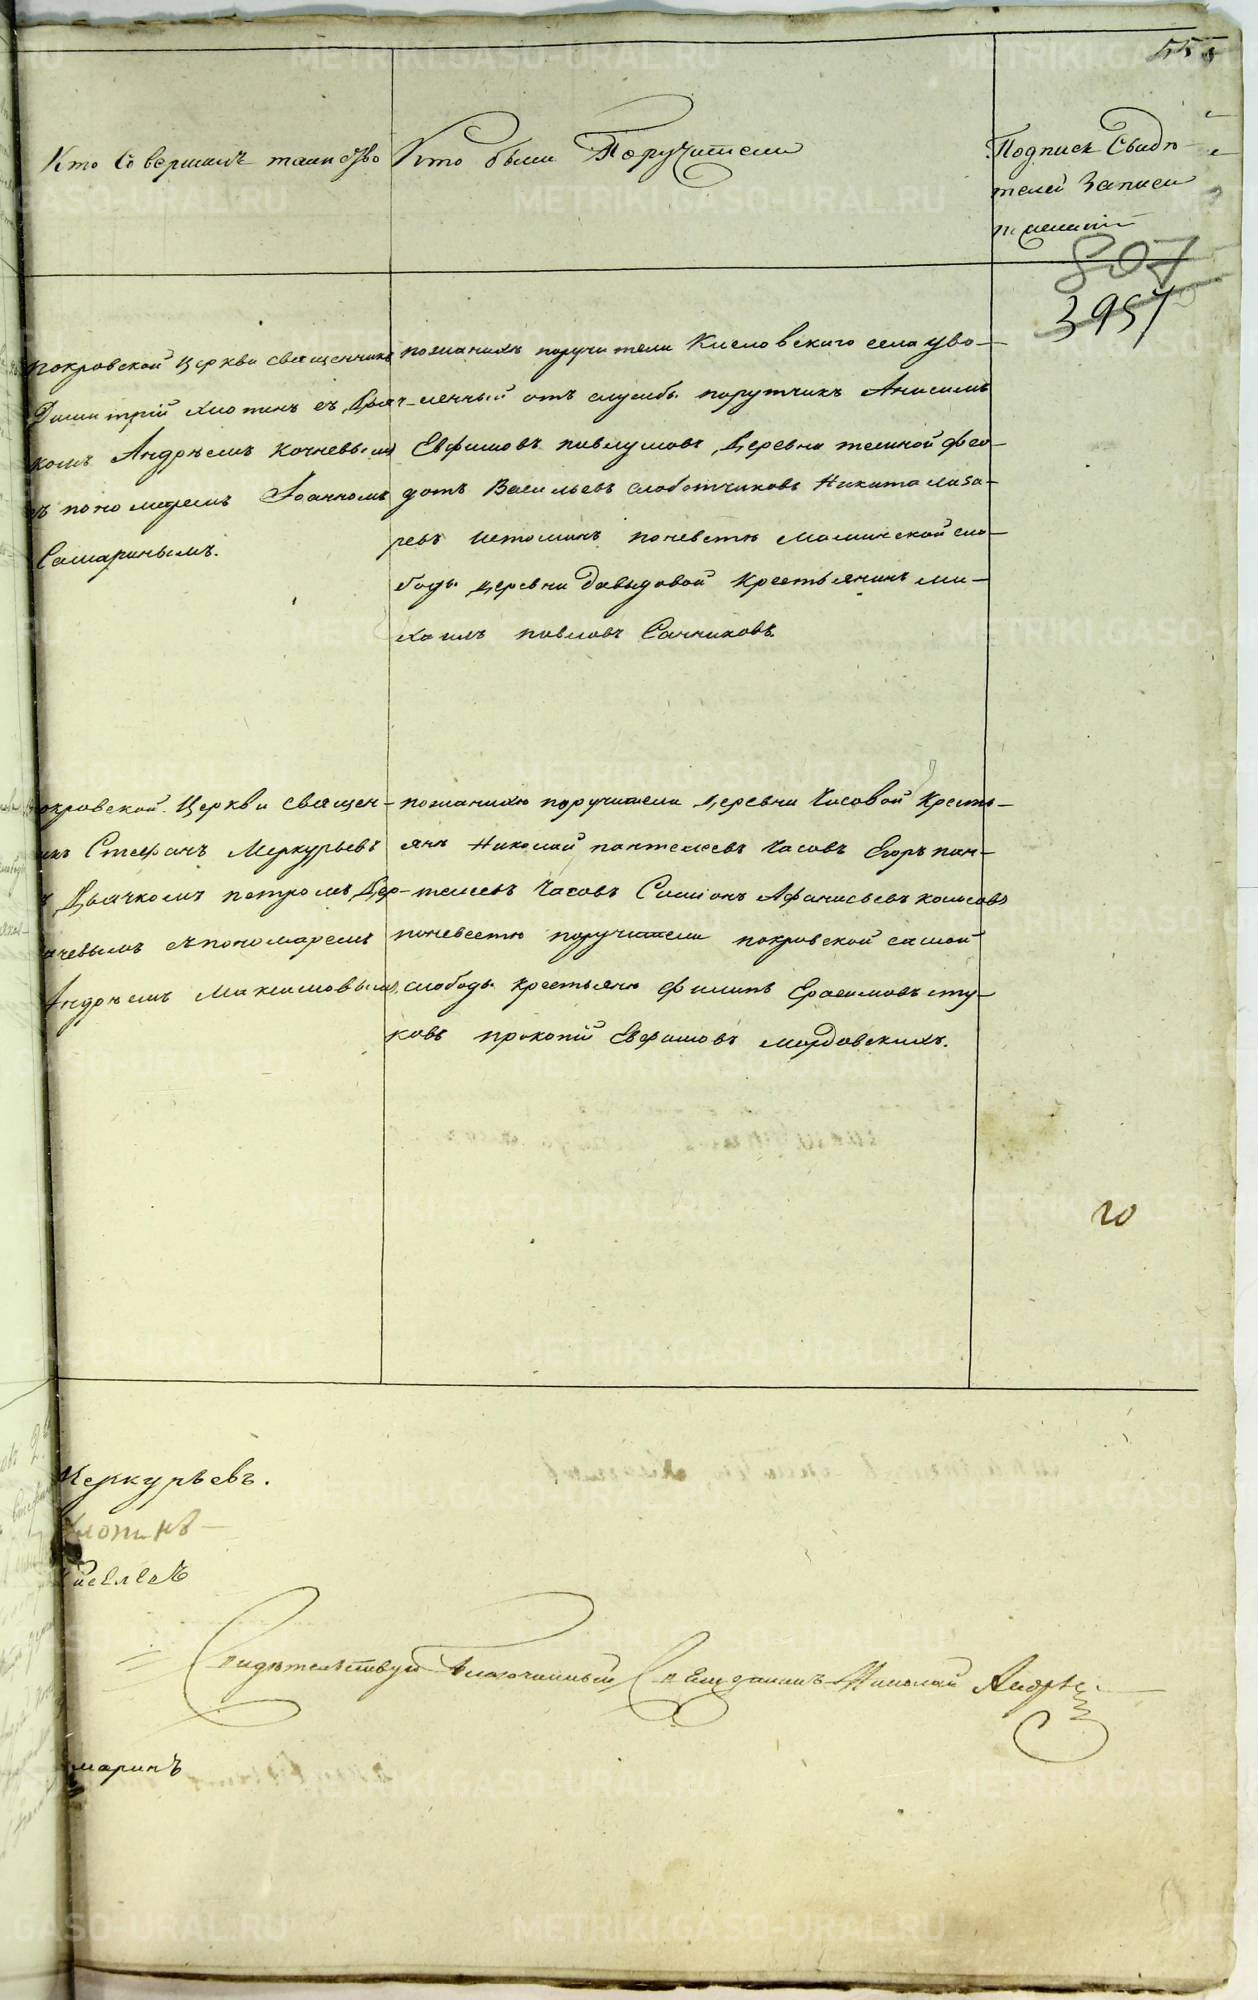 555
Кто Совершалъ таинство
Кто были Поручители
Подписи Свидѣ-
телей Записи
807
3957
покровской Церкви священникъ
Димитрій Хлопинъ съ Дьяч-
комъ Андрѣемъ Кочневымъ
съ пономаремъ Іоанномъ
Самаринымъ.
поженихѣ поручители Кисловскаго села уво-
ленный отъ службы порутчикъ Анисимъ
Евфимовъ павлушовъ, Деревни темной фео-
дотъ Васильевъ слободчиковъ Никита лаза-
ревъ истоминъ поневѣстѣ Маминской сло-
боды Деревни Давыдовой Крестьянинъ ми-
хаилъ павловъ Санниковъ
окровской Церкви священ-
икъ Стефанъ Меркурьевъ
ъ Дьячкомъ петромъ Дер-
ачевымъ съ пономаремъ
Андрѣемъ Максимовымъ,
поженихѣ поручители Деревни Часовой Кресть-
янѣ Николай пантелеевъ Часовъ Егоръ пан-
телеевъ Часовъ Симіонъ Афанасьевъ колосовъ
поневестѣ поручители покровской самой
слободы крестьянѣ филипъ Ерасимовъ сту-
ковъ прокопій Евфимовъ мордовскихъ.
20
Меркурьевъ.
Хлопинъ
Киселевъ
Свидѣтельствуй Благочинный Священникъ Николай Андрѣ
маринъ